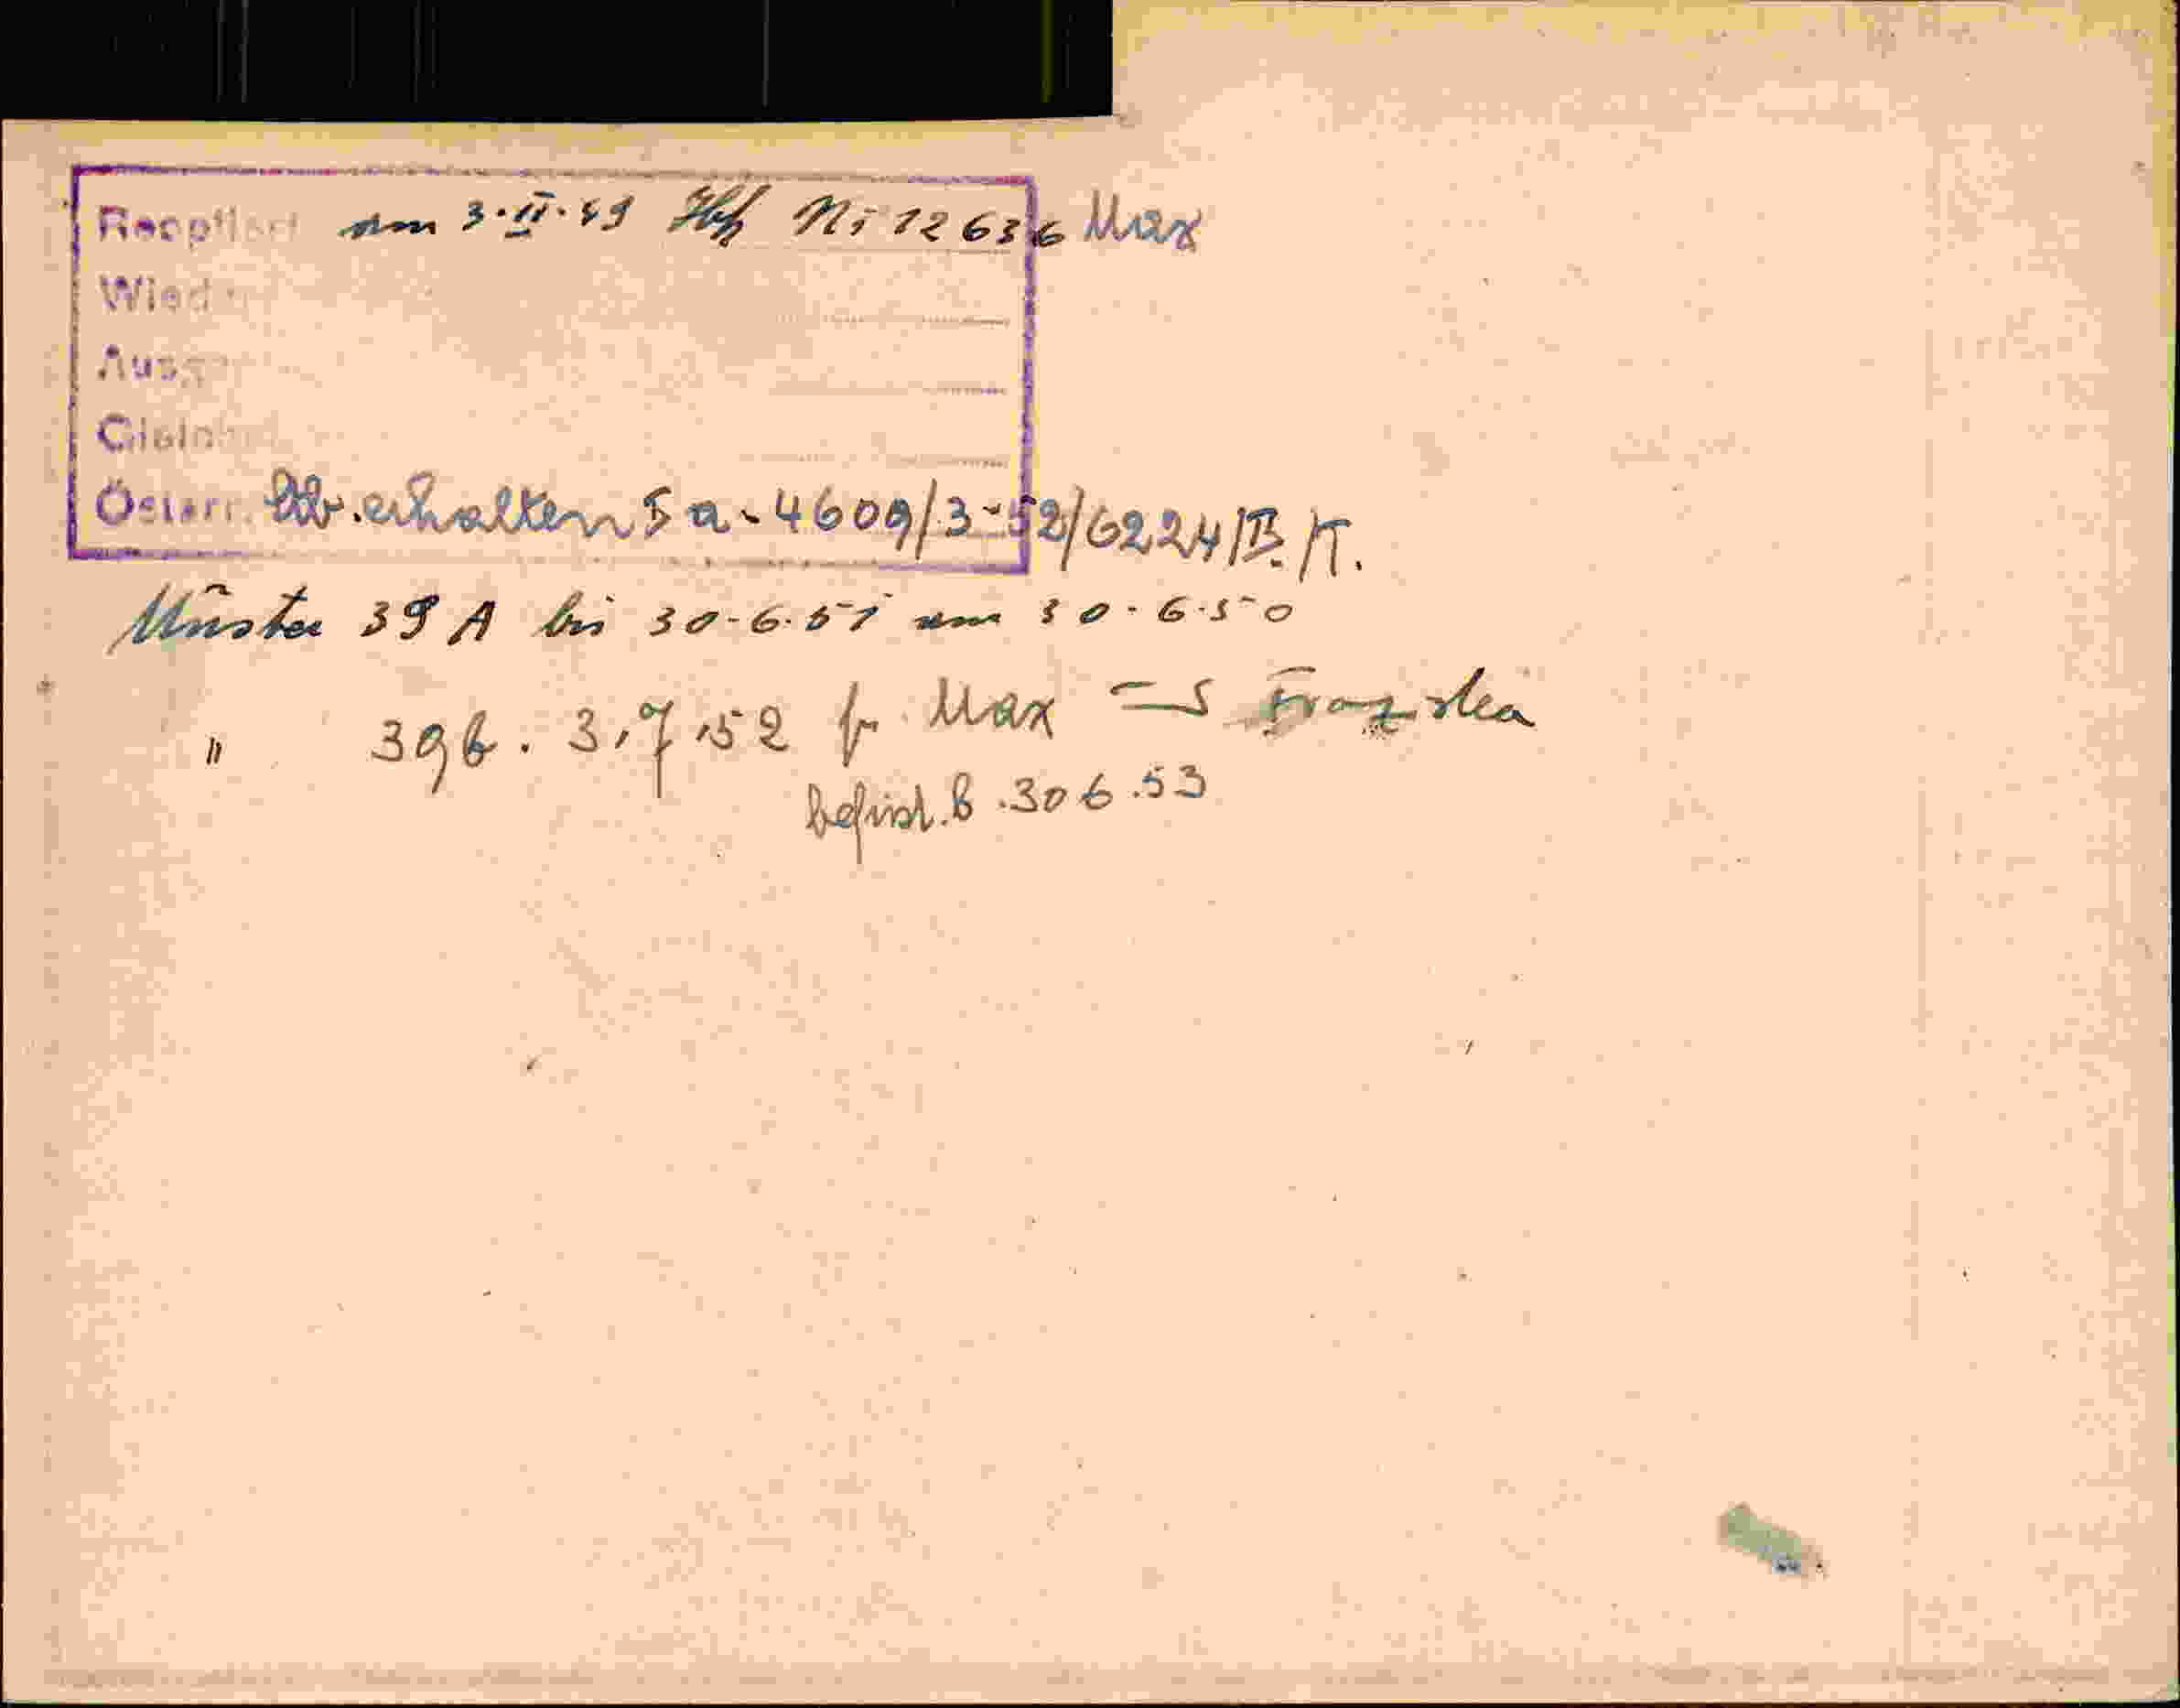 am 3.II.49 Nr 12636 Max
Wied
Ausg
Österr. Stb. erhalten 5 a - 4609/3-52/6224/II./T.
Muster 39 A bis 30-6-51 am 30-6-50
" 39b. 3.7.52 f. Max
befrist. b. 30 6.53